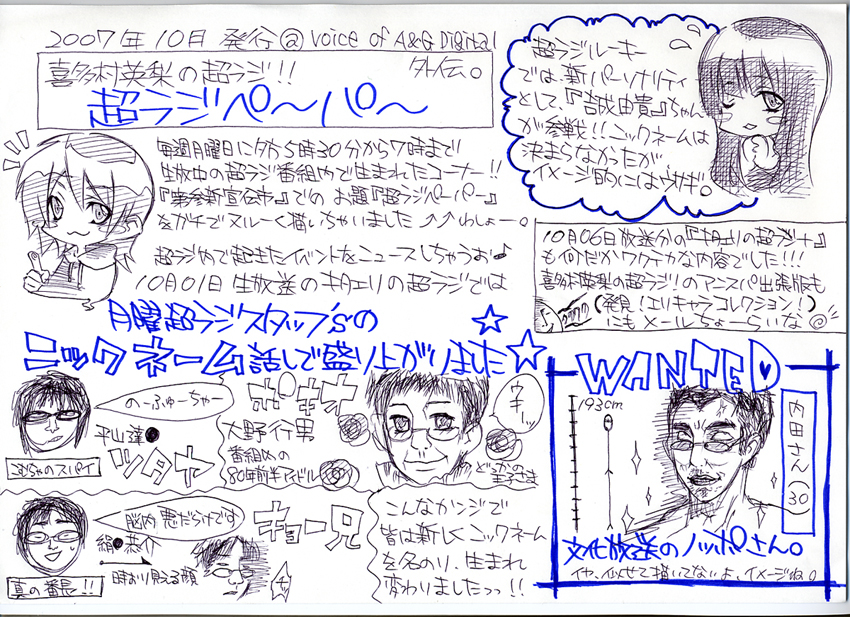 2007年10月発行@Voice of A&G Digital
喜多村英梨の超ラジ!!
外伝。
超ラジペ〜パ〜
毎週月曜日に夕方5時30分から7時まで
生放中の超ラジ番組内で生まれたコーナー!!
でのお題『超ラジペーパー』
をガチでヌルーく描いちゃいました ↗↗わしょー。
超ラジ内で起きたイベントをニュースしちゃうお♪
10月01日生放送のキタエリの超ラジでは
月曜超ラジスタッフ'sの
ニックネーム話しで盛り上がりました☆
超ラジルーキー
では、新パーソナリティ
として、『吉成由貴』ちゃん
が参戦!!ニックネームは
決まらなかったが
イメージ的にはウサギ。
10月06日放送分の『キタエリの超ラジ+』
も何だかワクテカな内容でした!!!
喜多村英梨の超ラジ!のアニスパ出張版も
(発見!エリキャラコレクション!)
にもメールちょーらいな@
のーふゅーちゃー
平山達●
こめちゃのスパイ
ツタヤ
ポサオ
大野行男
番組内の
80年前半アイドル
ウキーッ
どっかの
王子さま
脳内悪だらけです
絹●恭介
真の番長!!
時おり見える顔
キョー兄
こんなカンジで
皆は新しくニックネーム
を名のり、生まれ
変わりましたっっ!!
WANTED
193cm
内田さん(30)
文化放送のノッポさん。
イヤ、似せて描いてないよ、イメージね。